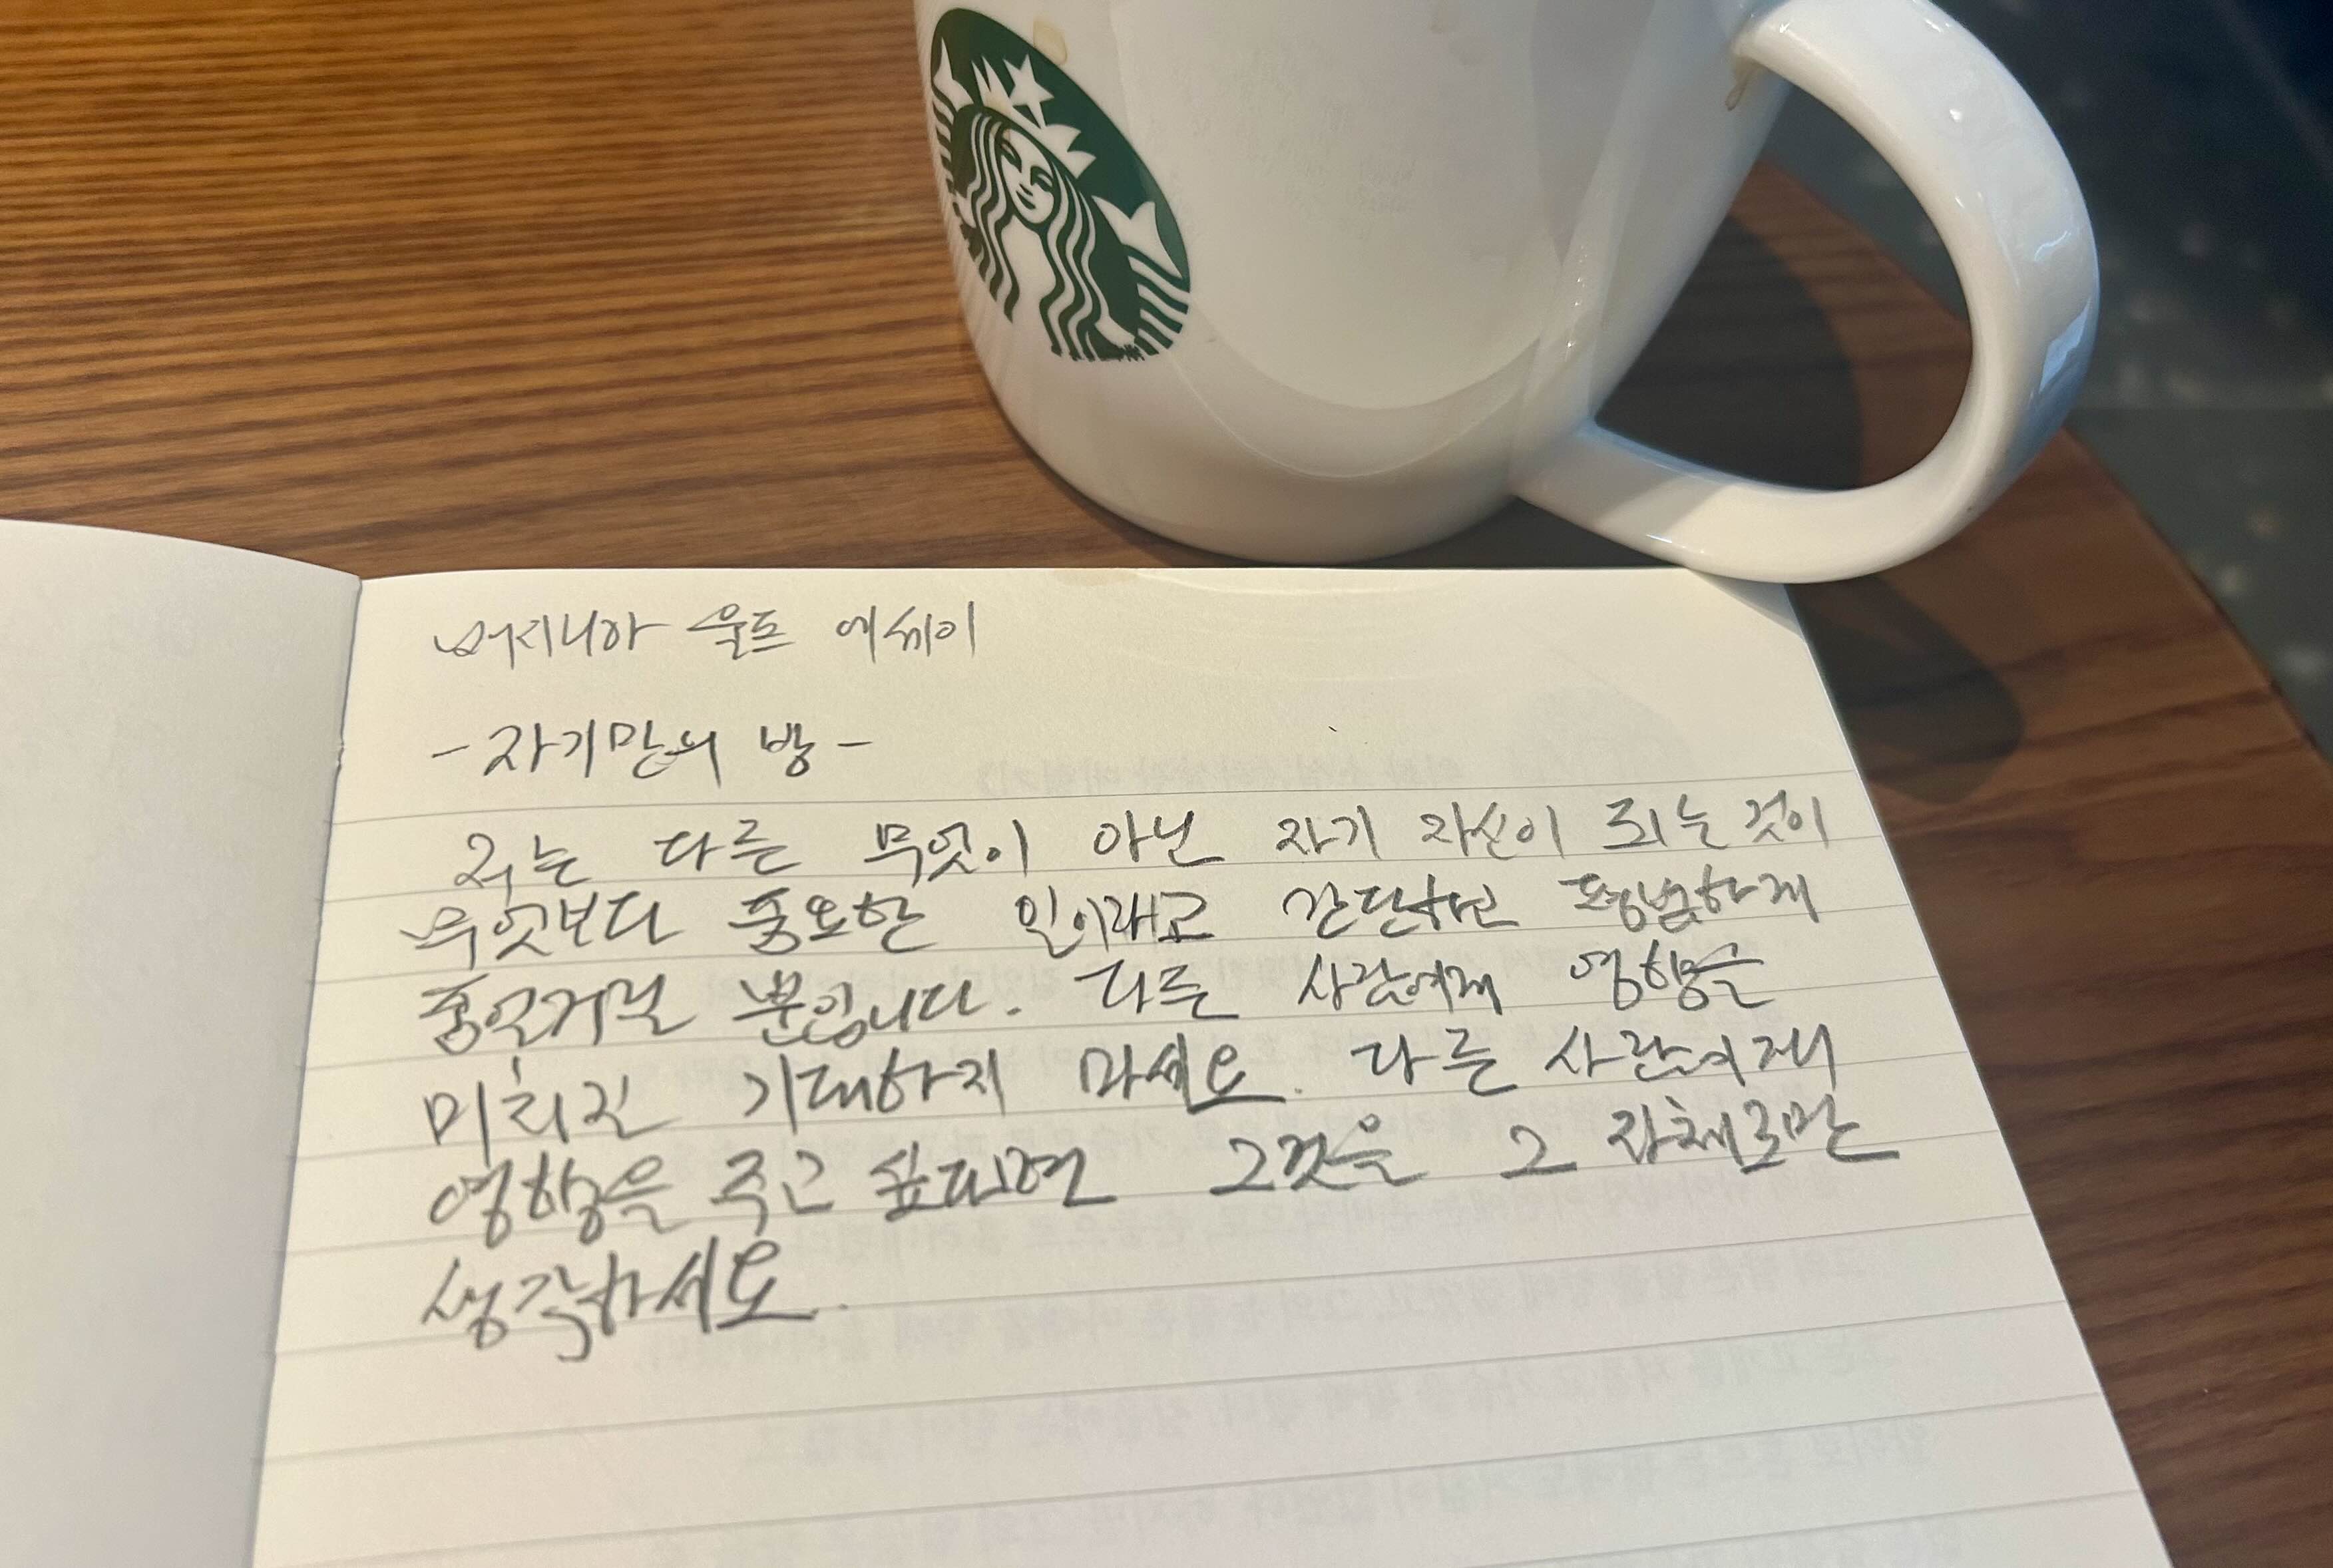 버지니아 울프 에세이
- 자기만의 방 -
저는 다른 무엇이 아닌 자기 자신이 되는 것이
무엇보다 중요한 일이라고 간단하고 평범하게
중얼거릴 뿐입니다. 다른 사람에게 영향을
미치길 기대하지 마세요. 다른 사람에게
영향을 주고 싶다면 그것을 그 자체로만
생각하세요.